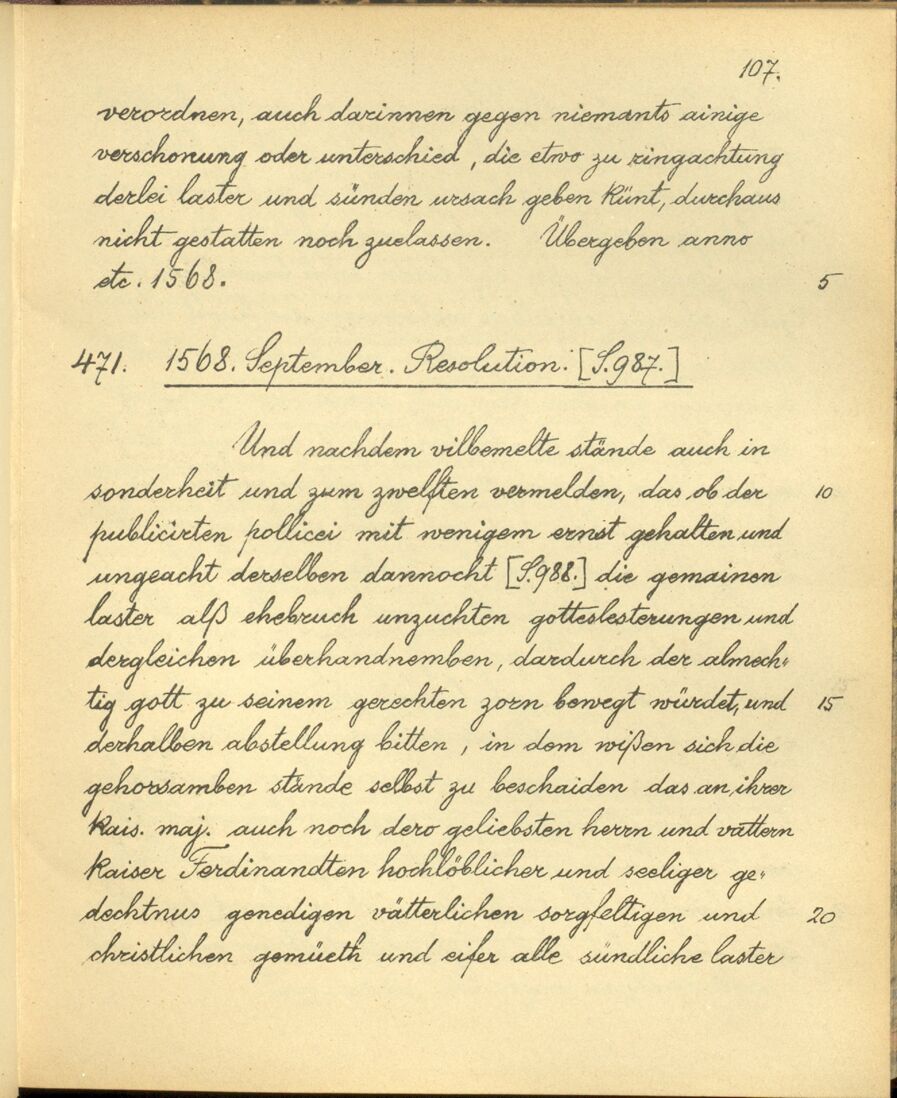 107.
verordnen, auch darinnen gegen niemants ainige
verschonung oder unterschied, die etwo zu ringachtung
derlei laster und sünden ursach geben künt, durchaus
nicht gestatten noch zuelassen. Übergeben anno
etc. 1568. 5
471. 1568. September. Resolution. [S. 987.]
Und nachdem vilbemelte stände auch in
sonderheit und zum zwelften vermelden, das ob der 10
publicirten pollicei mit wenigem ernst gehalten und
ungeacht derselben dannocht [S. 988.] die gemainen
laster alß ehebruch unzuchten gotteslesterungen und
dergleichen überhandnemben, dardurch der almech-
tig gott zu seinem gerechten zorn bewegt würdet, und 15
derhalben abstellung bitten, in dem wißen sich die
gehorsamben stände selbst zu beschaiden das an ihrer
kais. maj. auch noch dero geliebsten herrn und vattern
kaiser Ferdinandten hochlöblicher und seeliger ge-
dechtnus genedigen vätterlichen sorgfeltigen und 20
christlichen gemüeth und eifer alle sündliche laster